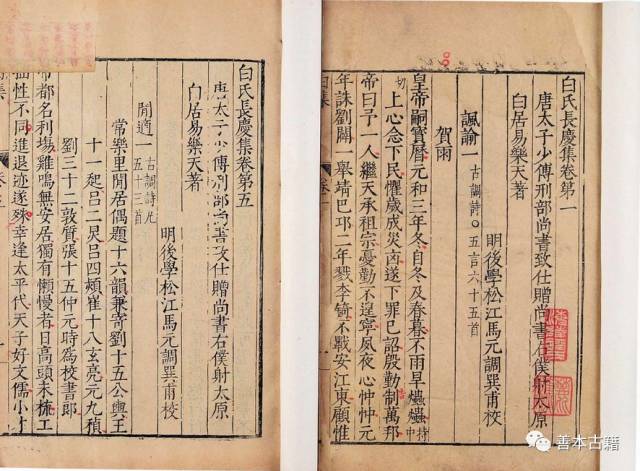 白氏長慶集卷第一
唐太子少傅刑部尚書致仕贈尚書右僕射太原
白居易樂天著
明後學松江馬元調巽甫校
諷諭一 古調詩 五言六十五首
賀雨
皇帝嗣寶曆元和三年冬自冬及春暮不雨旱爞爞
上心念下民懼歲成災凶遂下罪已詔殷勤制萬邦
帝曰予一人繼天承祖宗憂勤不遑寧夙夜心忡忡元
年誅劉闢一舉靖巴邛二年戮李錡不戰安江東顧惟
白氏長慶集卷第五
唐太子少傅刑部尚書致仕贈尚書右僕射太原
白居易樂天著
明後學松江馬元調巽甫校
閒適一 古調詩凡五十三首
常樂里閒居偶題十六韻兼寄劉十五公輿王
十一起呂二炅呂四熲崔十八玄亮元九稹
劉三十二敦質張十五仲元時為校書郎
帝都名利場雞鳴無安居獨有懶慢者日高頭未梳工
拙性不同進退迹遂殊幸逢太平代天子好文儒小才
善本古籍